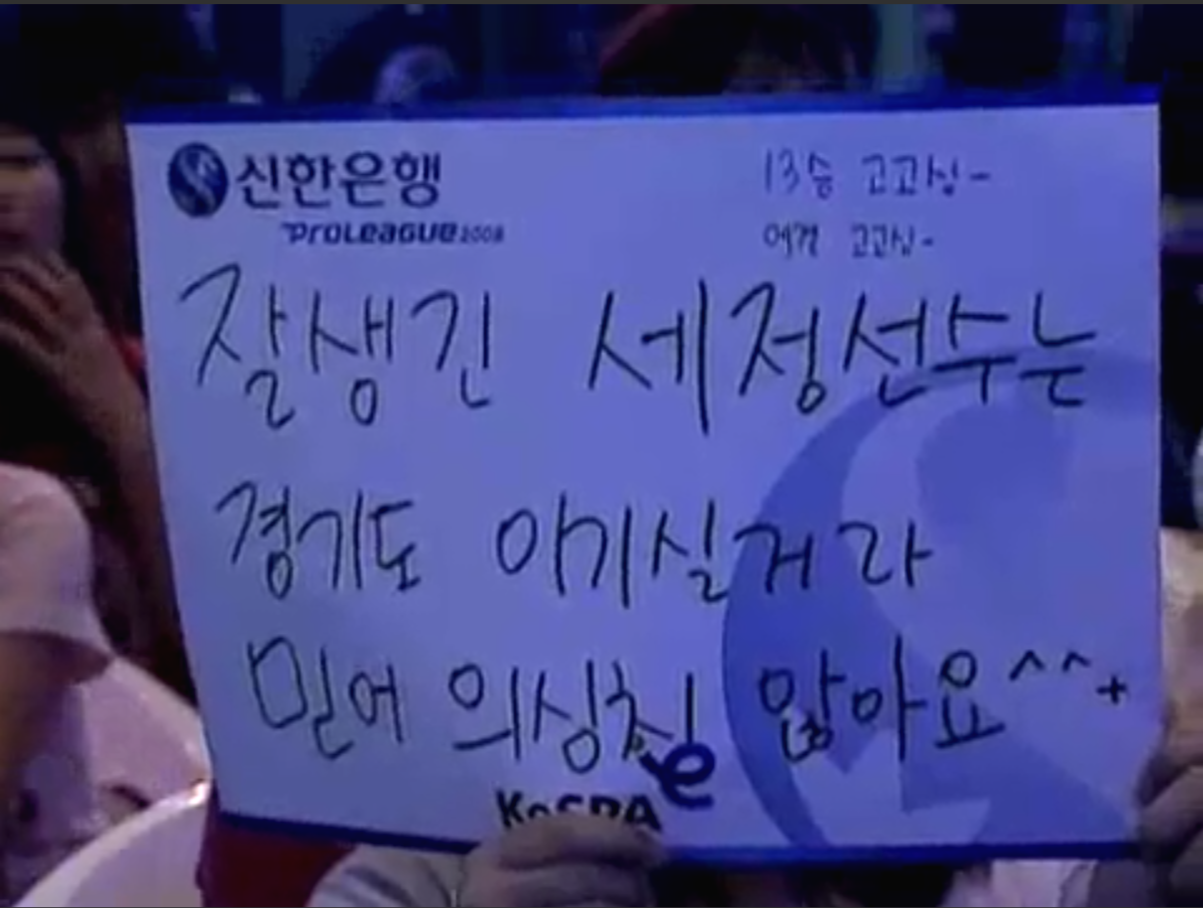 신한은행
PROLEAGUE 2008
13승 고고싱-
고고싱-
잘생긴 세정선수는
경기도 이기실거라
믿어 의심칠 않아요^^+
KeSPA